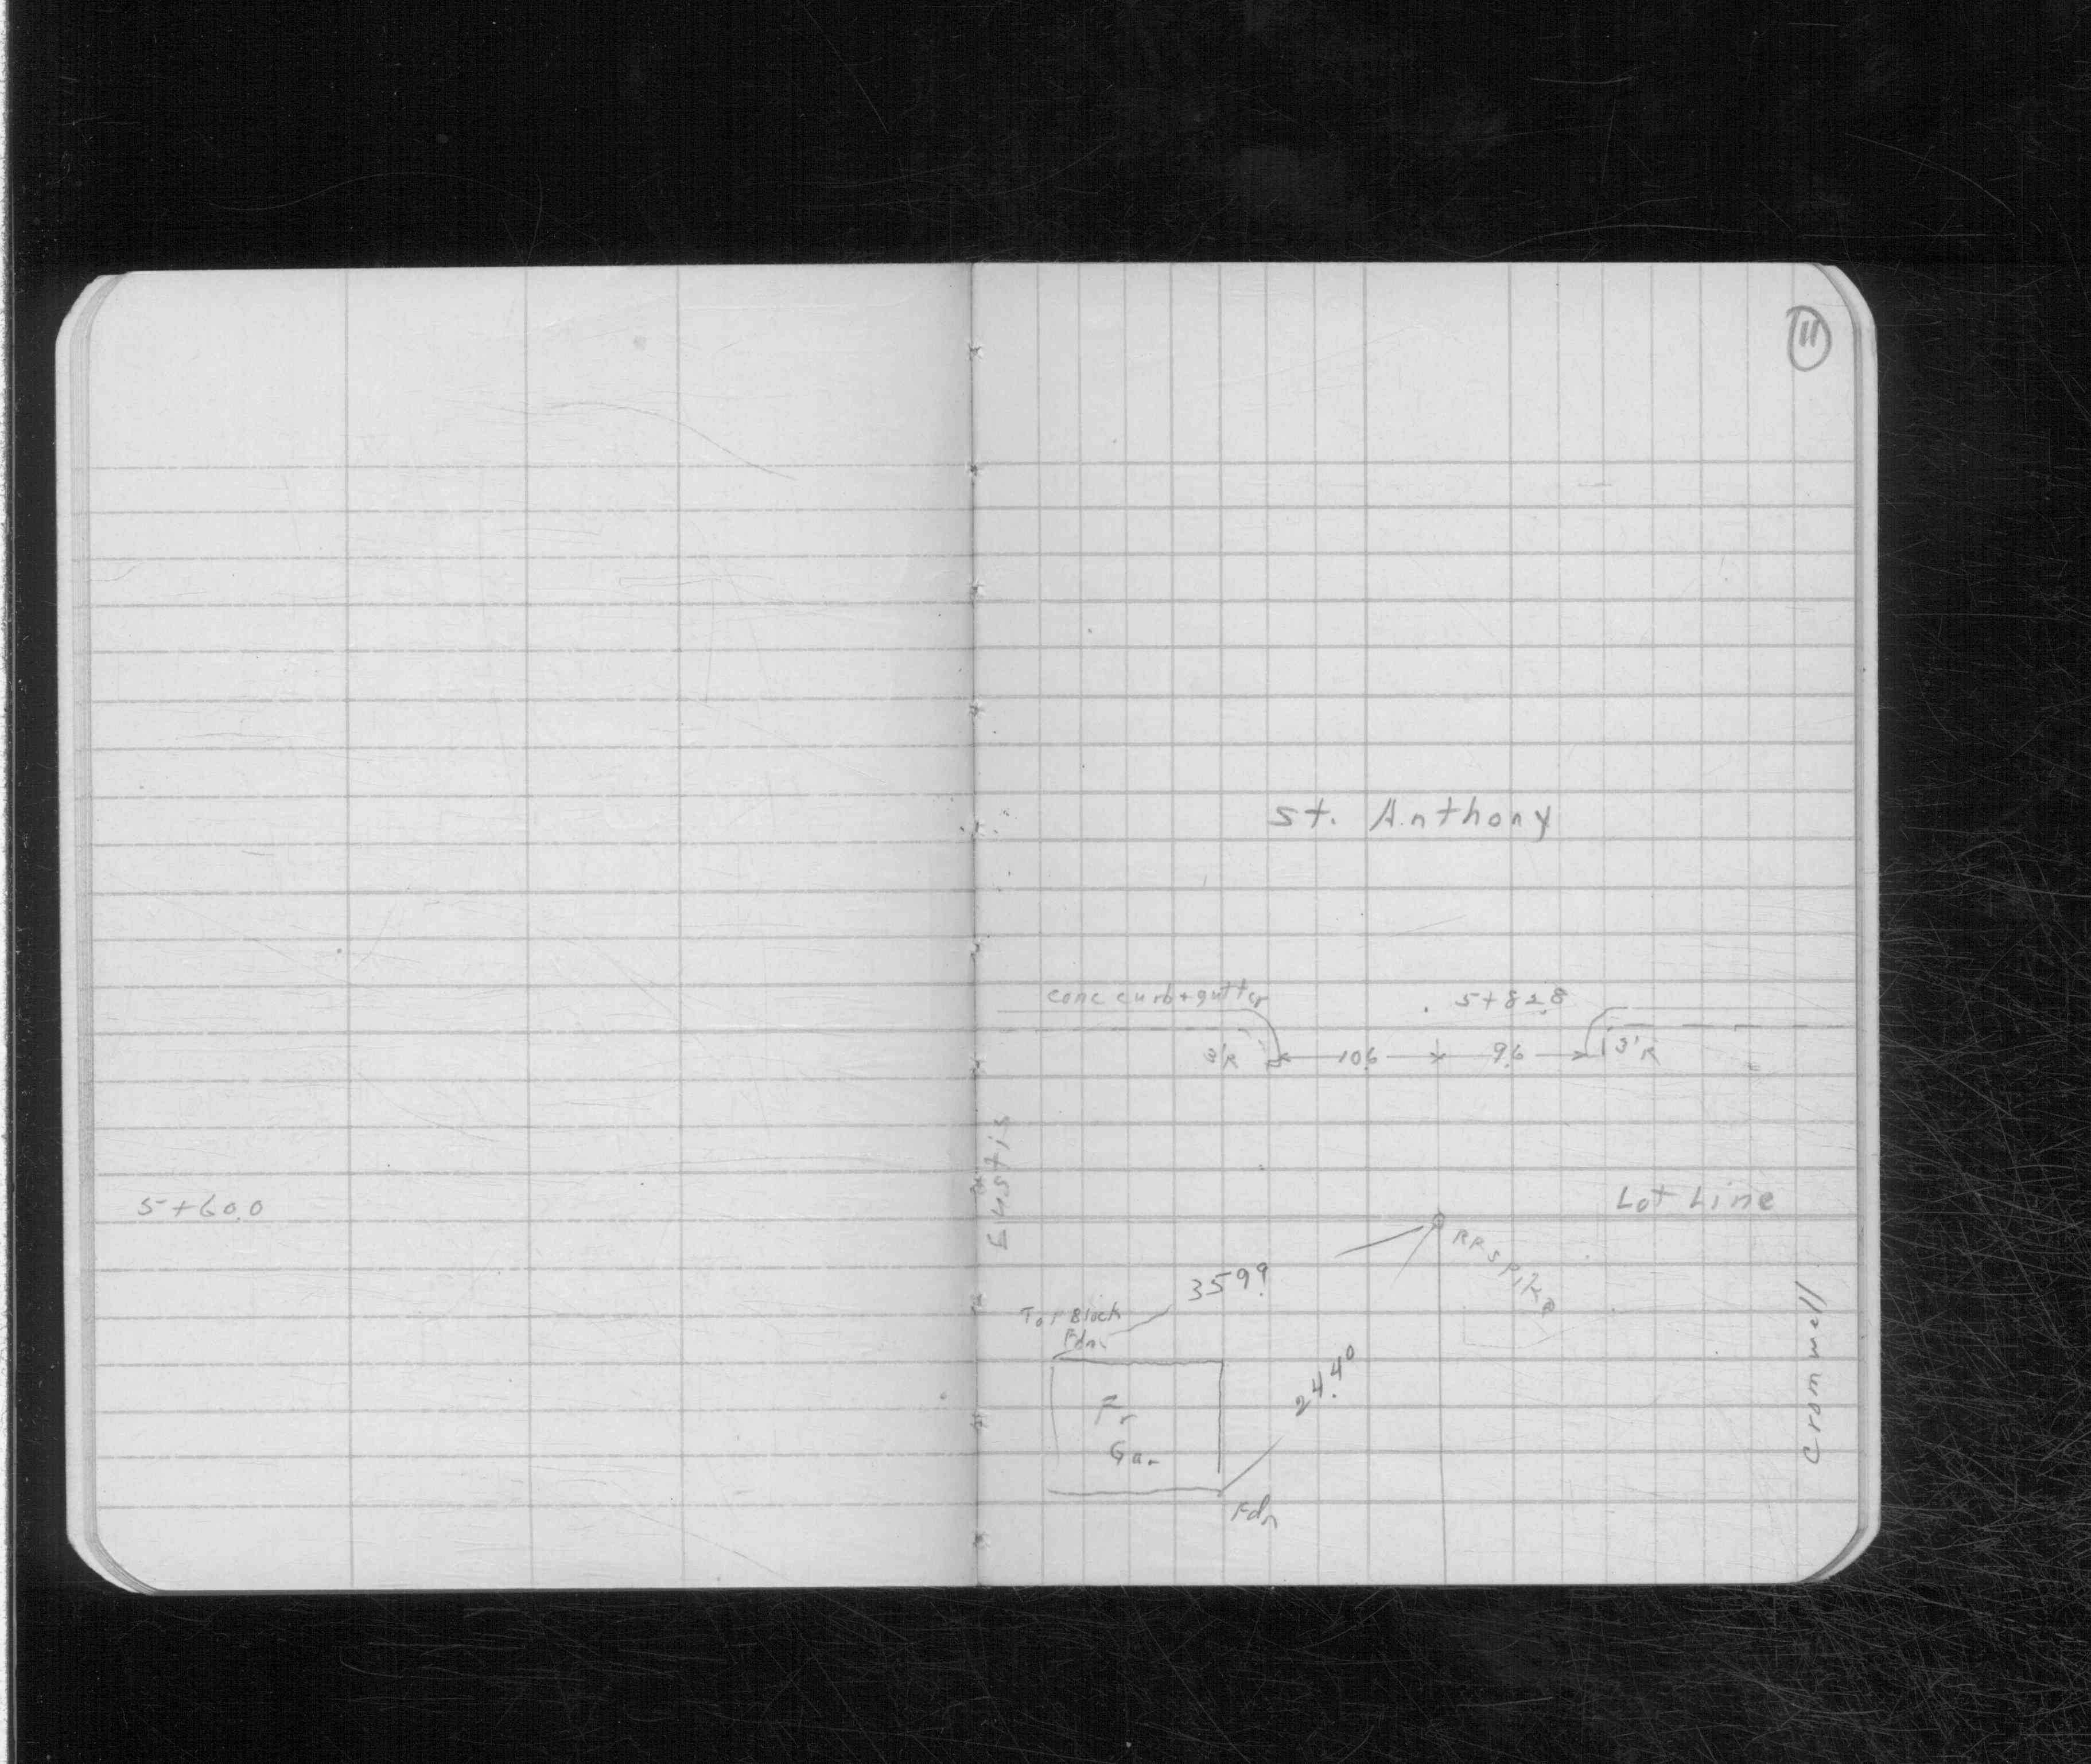 11
St. Anthony
conc curb + gutter
5+82.8
3'R
10.6
9.6
3'R
Eustis
5+60.0
Lot Line
RR Spike
35.99
Top Block
Fdn.
24.40
Fr
Gar
Fdn
Cromwell